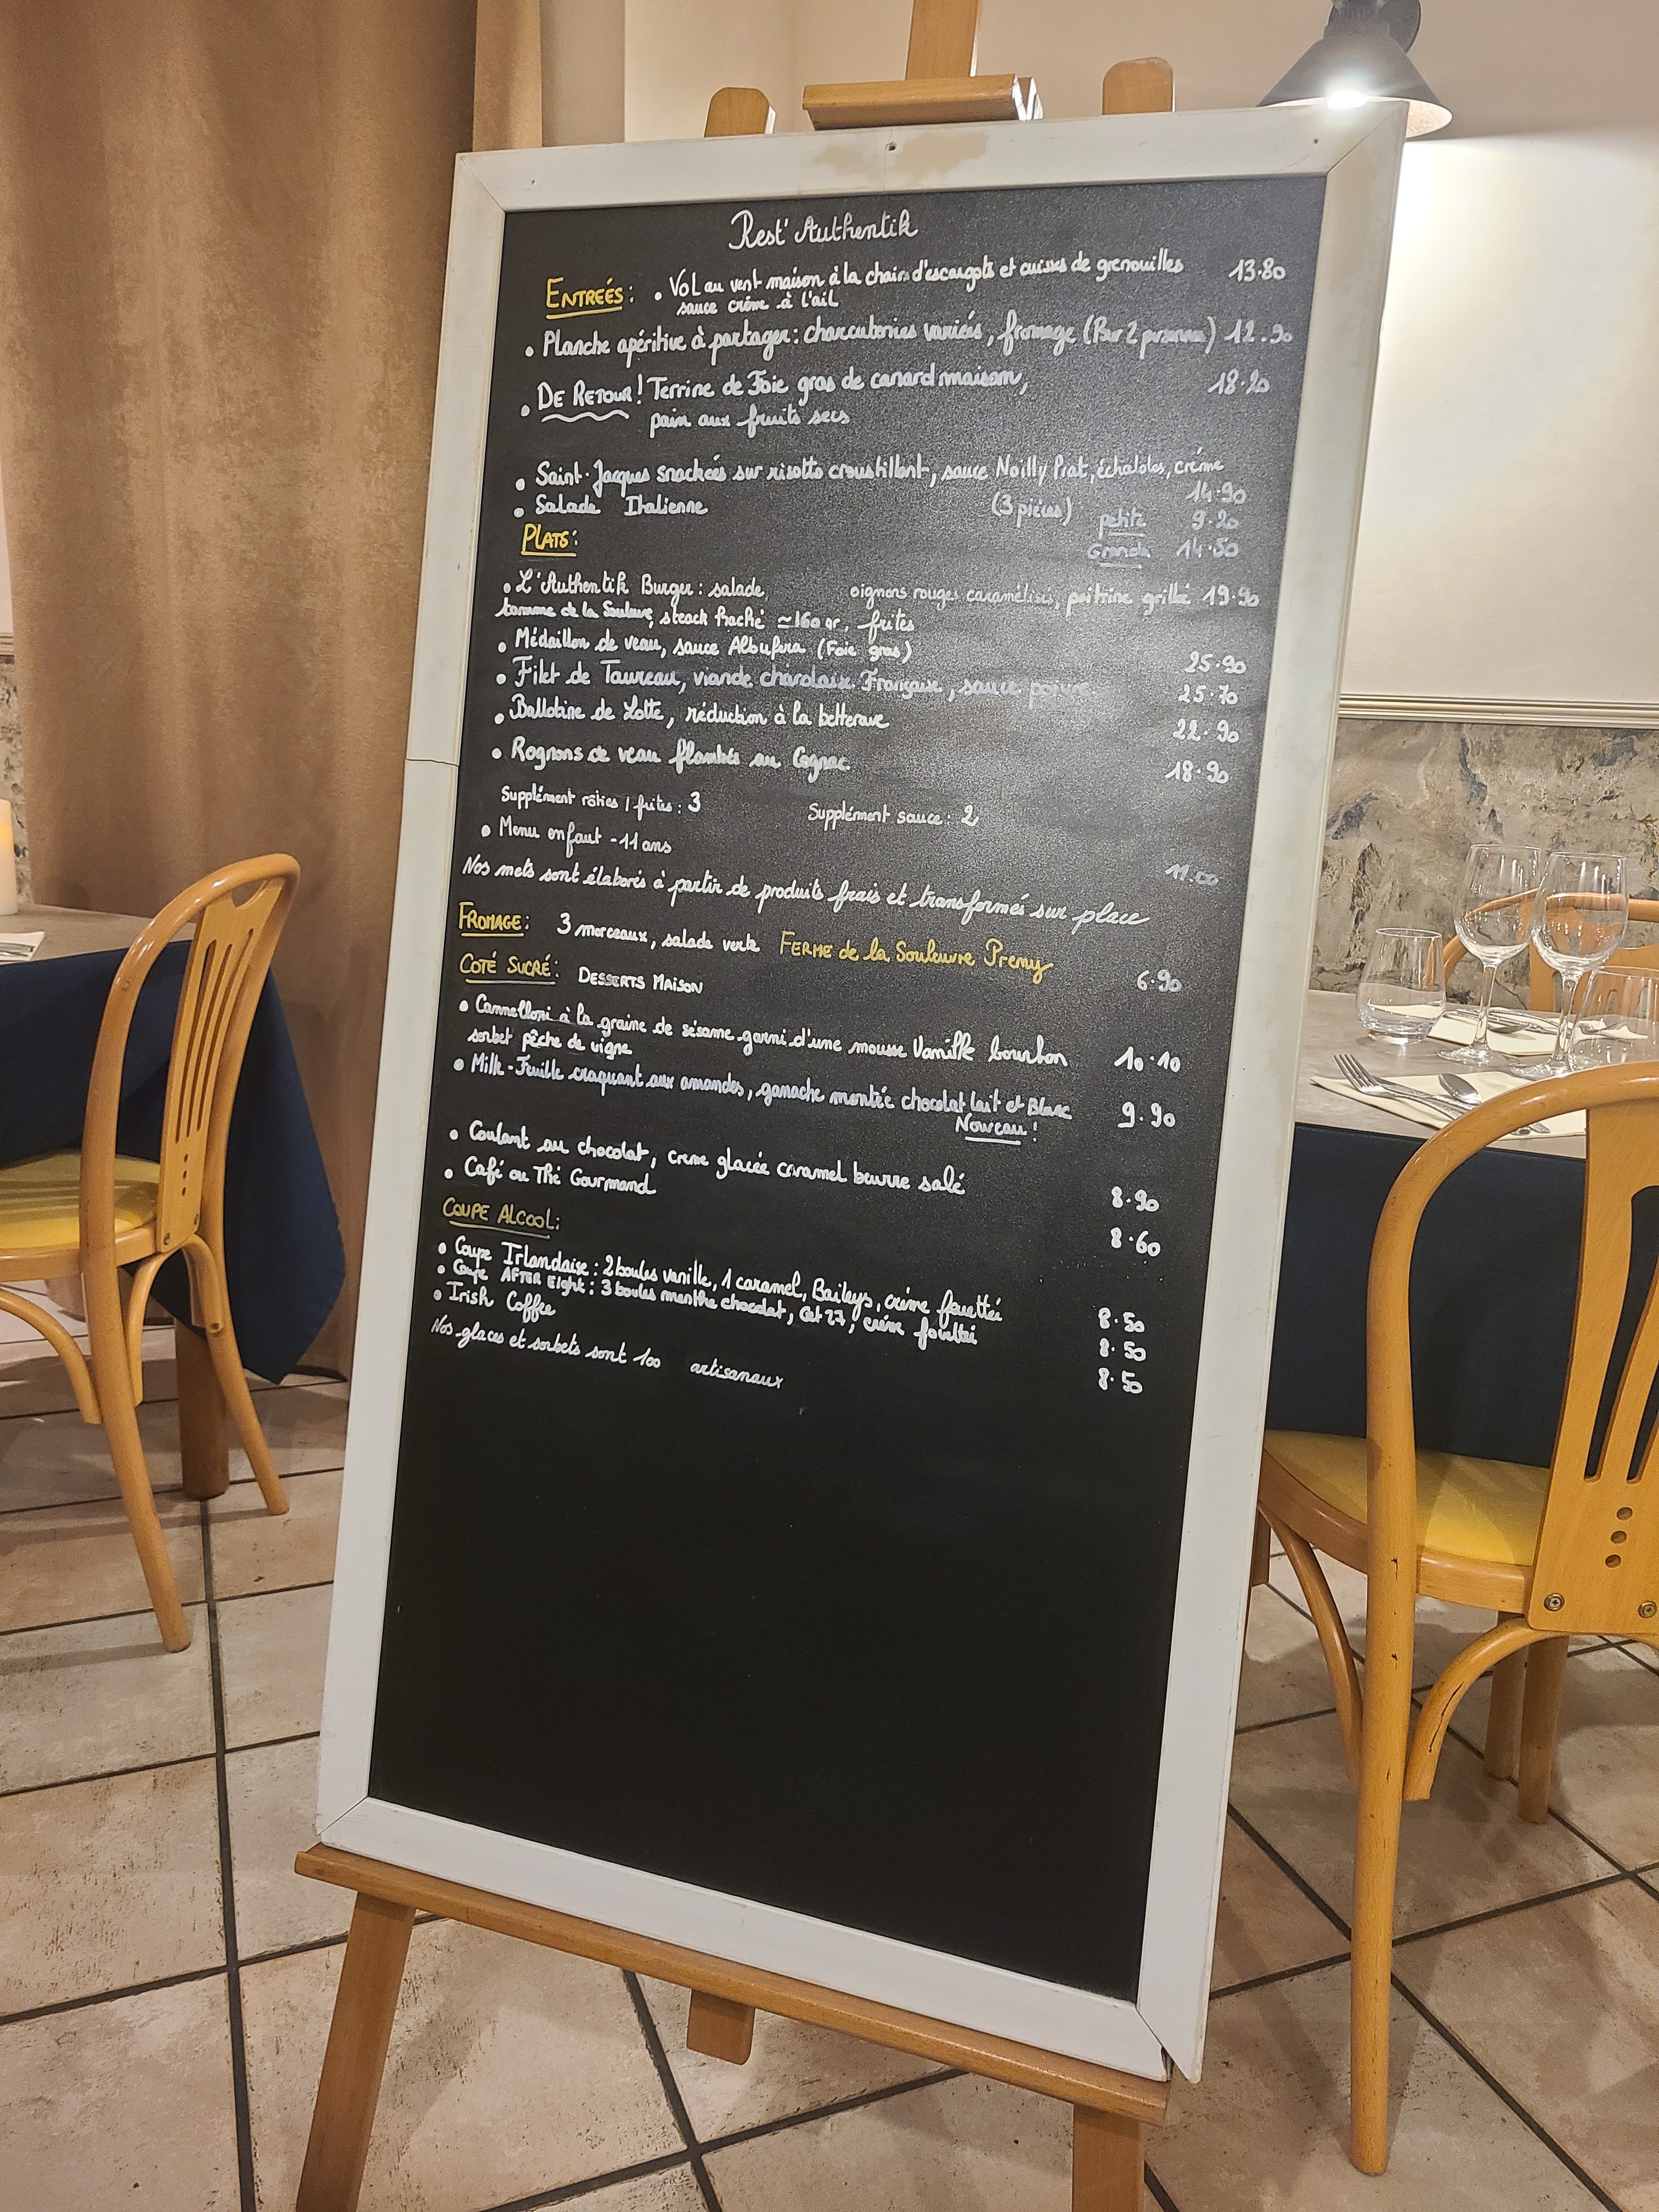 Rest' Authentik
ENTREÉS: • Vol au vent maison à la chair d'escargots et cuisses de grenouilles 13.80
sauce crème à l'ail
• Planche apéritive à partager: charcuteries variées, fromage (Pour 2 personnes) 12.90
• DE RETOUR! Terrine de Foie gras de canard maison, 18.20
pain aux fruits secs
• Saint-Jacques snackées sur risotto croustillant, sauce Noilly Prat, échalotes, crème
(3 pièces) 14.90
• Salade Italienne petite 9.20
Grande 14.50
PLATS:
• L'Authentik Burger: salade, oignons rouges caramélisés, poitrine grillé 19.90
tomme de la Souleuvre, steack haché ~160 gr, frites
• Médaillon de veau, sauce Albufera (Foie gras) 25.90
• Filet de Taureau, viande charolaise Française, sauce poivre 25.70
• Ballotine de Lotte, réduction à la betterave 22.90
• Rognons de veau flambés au Cognac 18.90
Supplément röties / frites: 3 Supplément sauce: 2
• Menu enfant -11 ans 11.00
Nos mets sont élaborés à partir de produits frais et transformés sur place
FROMAGE: 3 morceaux, salade verte FERME de la Souleuvre Prémy 6.90
COTÉ SUCRÉ: DESSERTS MAISON
• Cannelloni à la graine de sésame garni d'une mousse Vanille bourbon 10.10
sorbet pêche de vigne
• Mille-Feuille craquant aux amandes, ganache montée chocolat lait et Blanc 9.90
Nouveau!
• Coulant au chocolat, crème glacée caramel beurre salé 8.90
• Café ou Thé Gourmand 8.60
COUPE ALCOOL:
• Coupe Irlandaise: 2 boules vanille, 1 caramel, Baileys, crème fouettée 8.50
• Coupe AFTER Eight: 3 boules menthe chocolat, Get 27, crème fouettée 8.50
• Irish Coffee 8.50
Nos glaces et sorbets sont 100 artisanaux